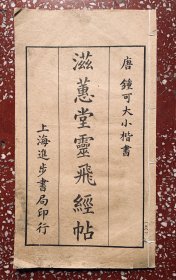 唐鍾可大小楷書
滋蕙堂靈飛經帖
上海進步書局印行